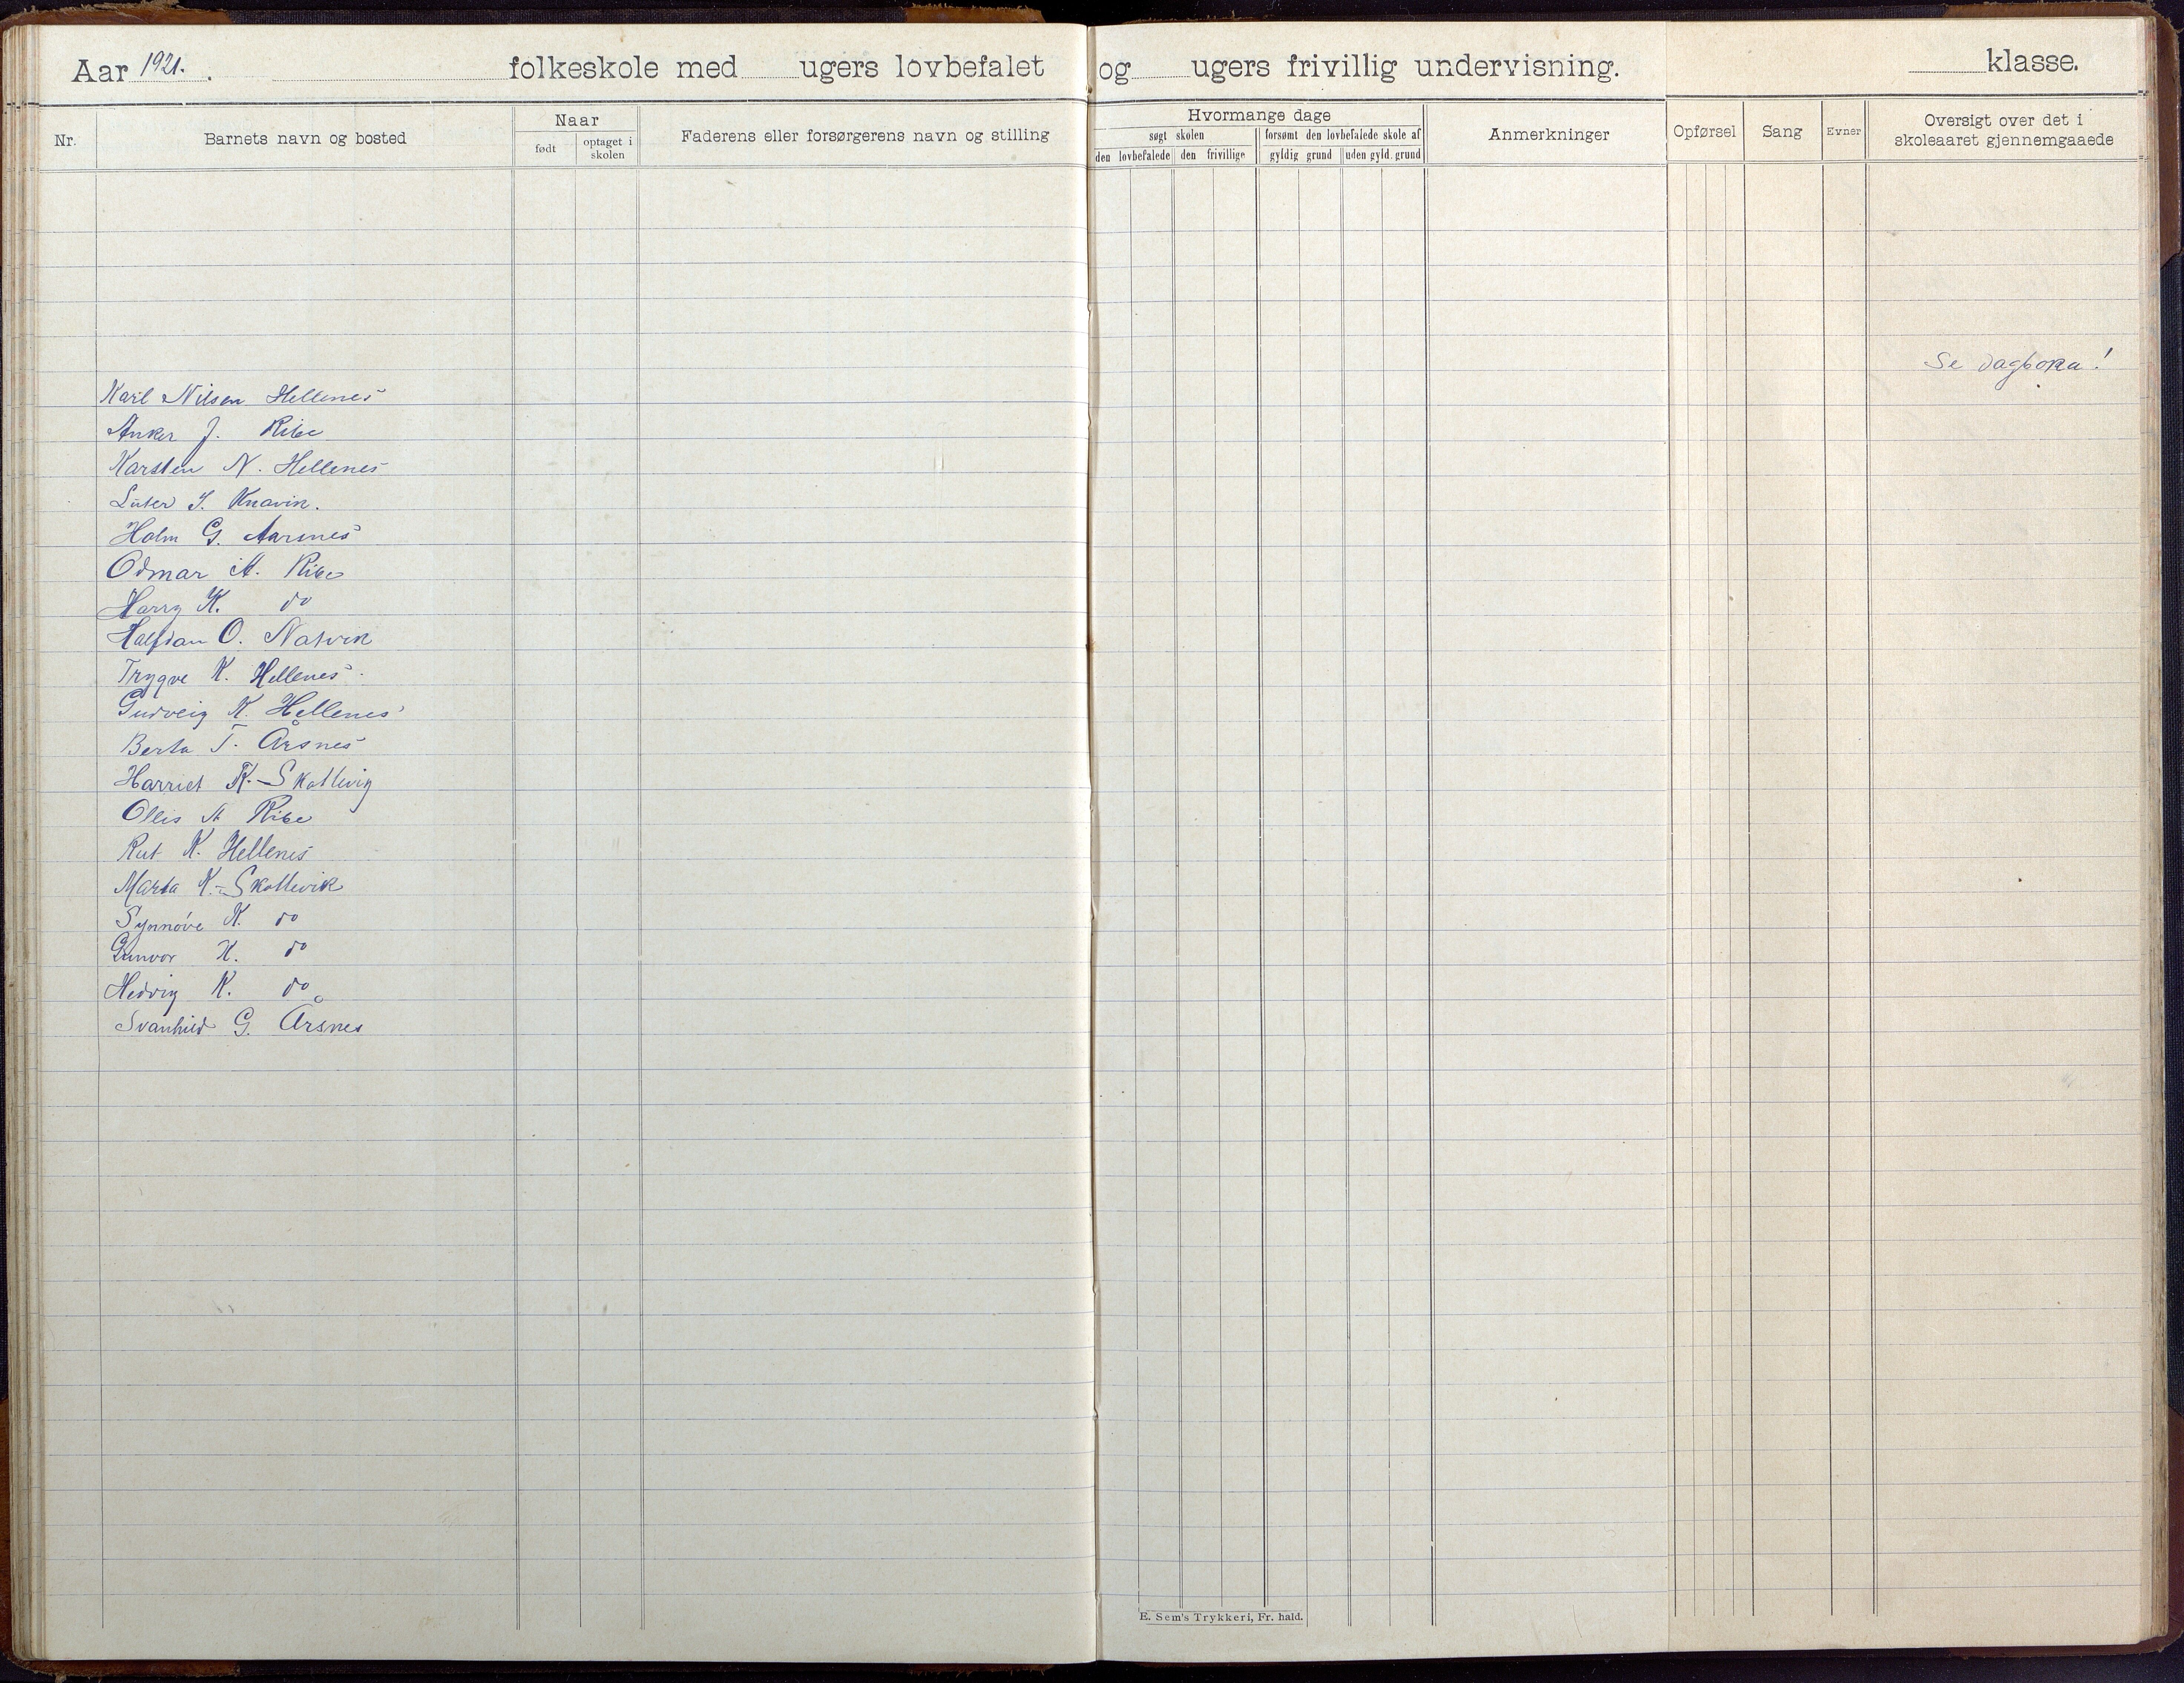 Aar 1921. folkeskole med ugers lovbefalet og ugers frivillig undervisning. klasse.
Nr.
Barnets navn og bosted
Naar
født
optaget i skolen
Faderens eller forsørgerens navn og stilling
Hvormange dage
søgt skolen
forsømt den lovbefalede skole af
den lovbefalede
den frivillige
gyldig grund
uden gyld. grund
Anmerkninger
Opførsel
Sang
Evner
Oversigt over det i
skoleaaret gjennemgaaede
Se dagboka!
Karl Nilsen Hellenes
Anker J. Ribe
Karsten N. Hellenes
Luter S. Knavik.
Holm G. Aarsnes
Odmar A. Ribe
Harry K. do
Halfdan O. Natvik
Trygve K. Hellenes
Gudveig K. Hellenes
Berta T. Årsnes
Harriet K.-Skottevig
Ollis A Ribe
Rut K. Hellenes
Marta K.-Skottevik
Synnøve K. do
Gunvor K. do
Hedvig K. do
Svanhild G. Årsnes
E. Sem's Trykkeri, Fr. hald.